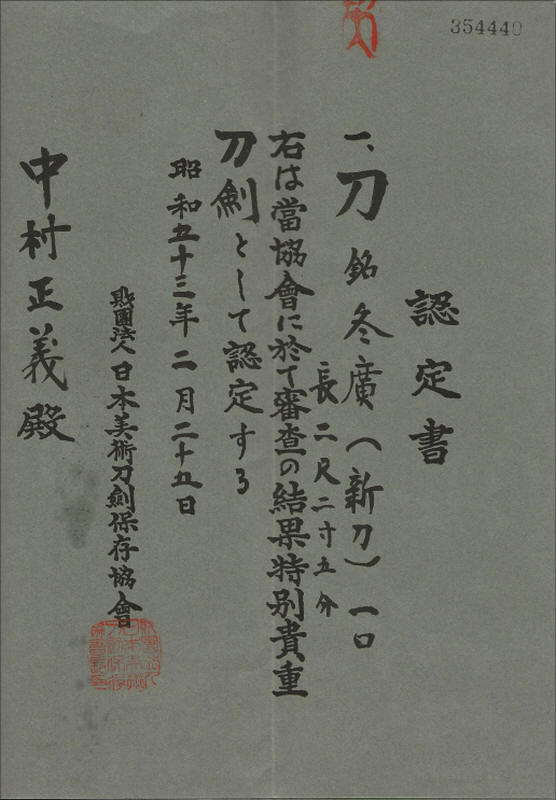 354440
認定書
一、刀 銘 冬廣(新刀) 一口
長二尺二寸五分
右は當協會に於て審査の結果特別貴重
刀劍として認定する
昭和五十三年二月二十五日
財團法人日本美術刀劍保存協會
中村正義殿